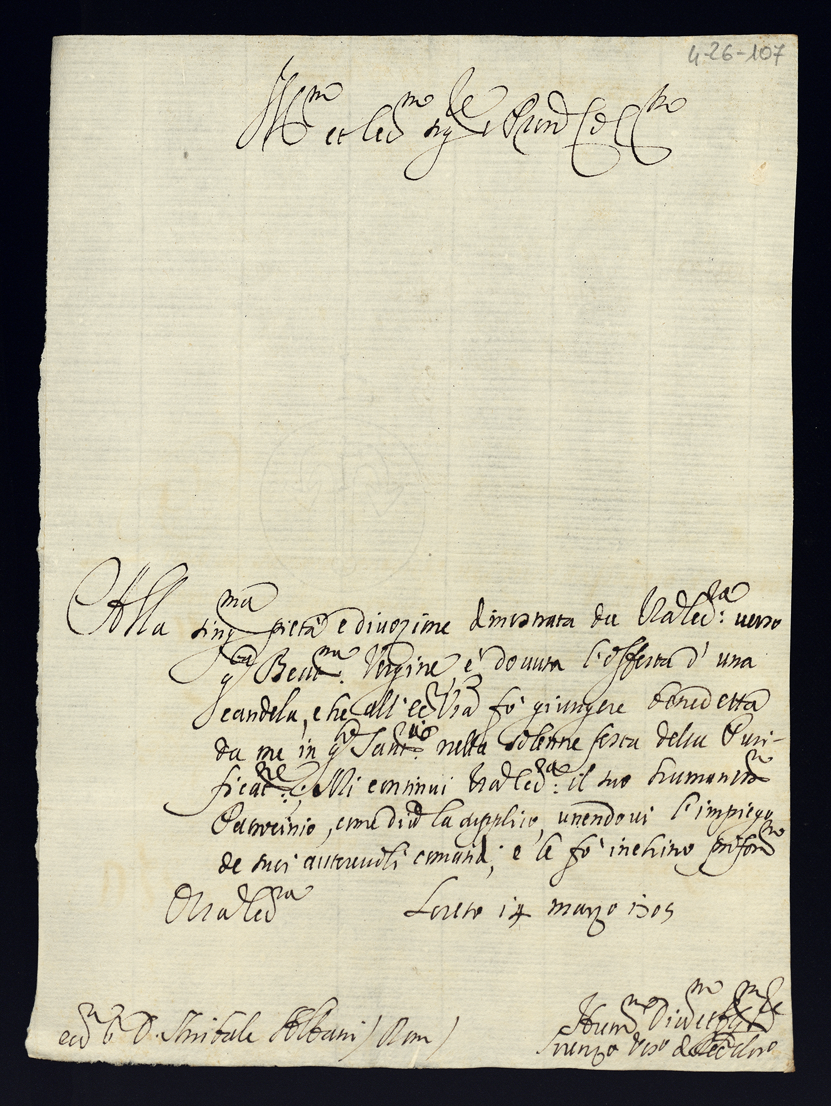 4-26-107
Ill.mo et Ecc.mo Sig.re Pron Col.mo
Alla sing.ma pietà e divozione dimostrata da Vra Ecc.za: verso
q.ta Beat.ma Vergine, è dovuta l'offerta d'una
candela, che all'Ecc Vra fò giungere benedetta
da me in q.to Sant.rio nella solenne festa della Puri-
ficat.ne. Mi continui Vra Ecc.za: il suo humaniss.mo
Patrocinio, come la supplico, unendovi l'impiego
de suoi autorevoli comandi; e le fò inchino
Vra Ecc.za Loreto 14 marzo 1705
D. Annibale Albani / Roma /
Hum.mo Div.mo et
Lorenzo Vesc.o